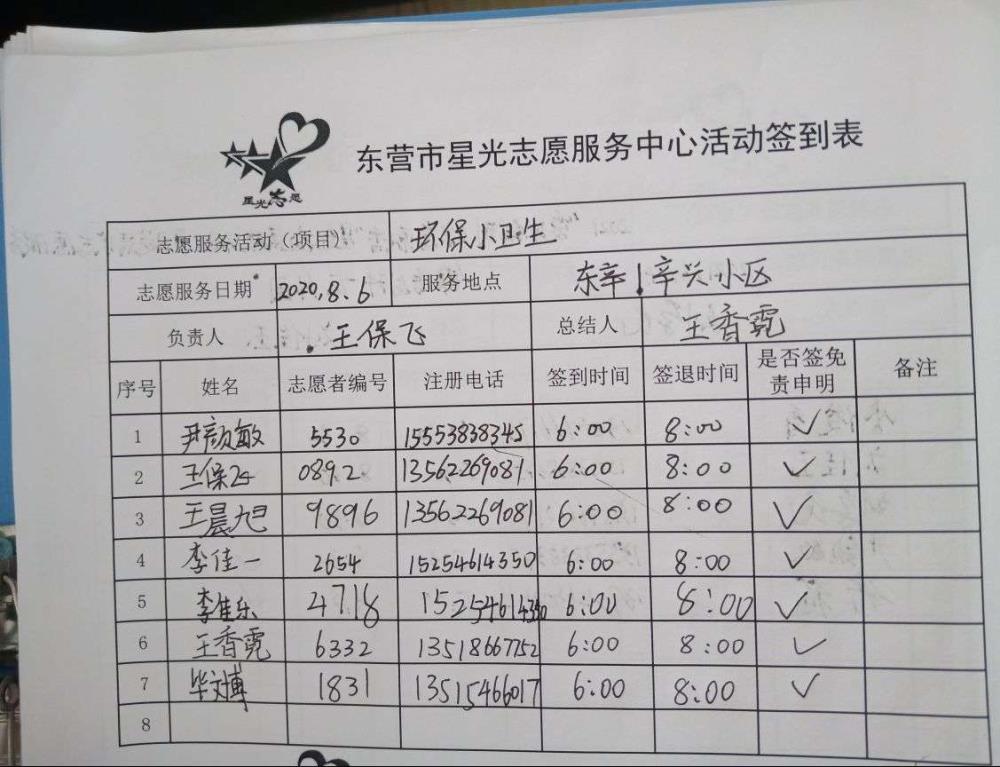 星光志愿
东营市星光志愿服务中心活动签到表
志愿服务活动（项目） 环保小卫生
志愿服务日期 2020.8.6 服务地点 东辛辛兴小区
负责人 王保飞 总结人 王香霓
序号 姓名 志愿者编号 注册电话 签到时间 签退时间 是否签免责申明 备注
1 尹颜敏 5530 15553838345 6:00 8:00 ✓
2 王保飞 0892 13562269081 6:00 8:00 ✓
3 王晨旭 9896 13562269081 6:00 8:00 ✓
4 李佳一 2654 15254614350 6:00 8:00 ✓
5 李佳乐 4718 15254614350 6:00 8:00 ✓
6 王香霓 6332 13518667752 6:00 8:00 ✓
7 毕文博 1831 13515466017 6:00 8:00 ✓
8